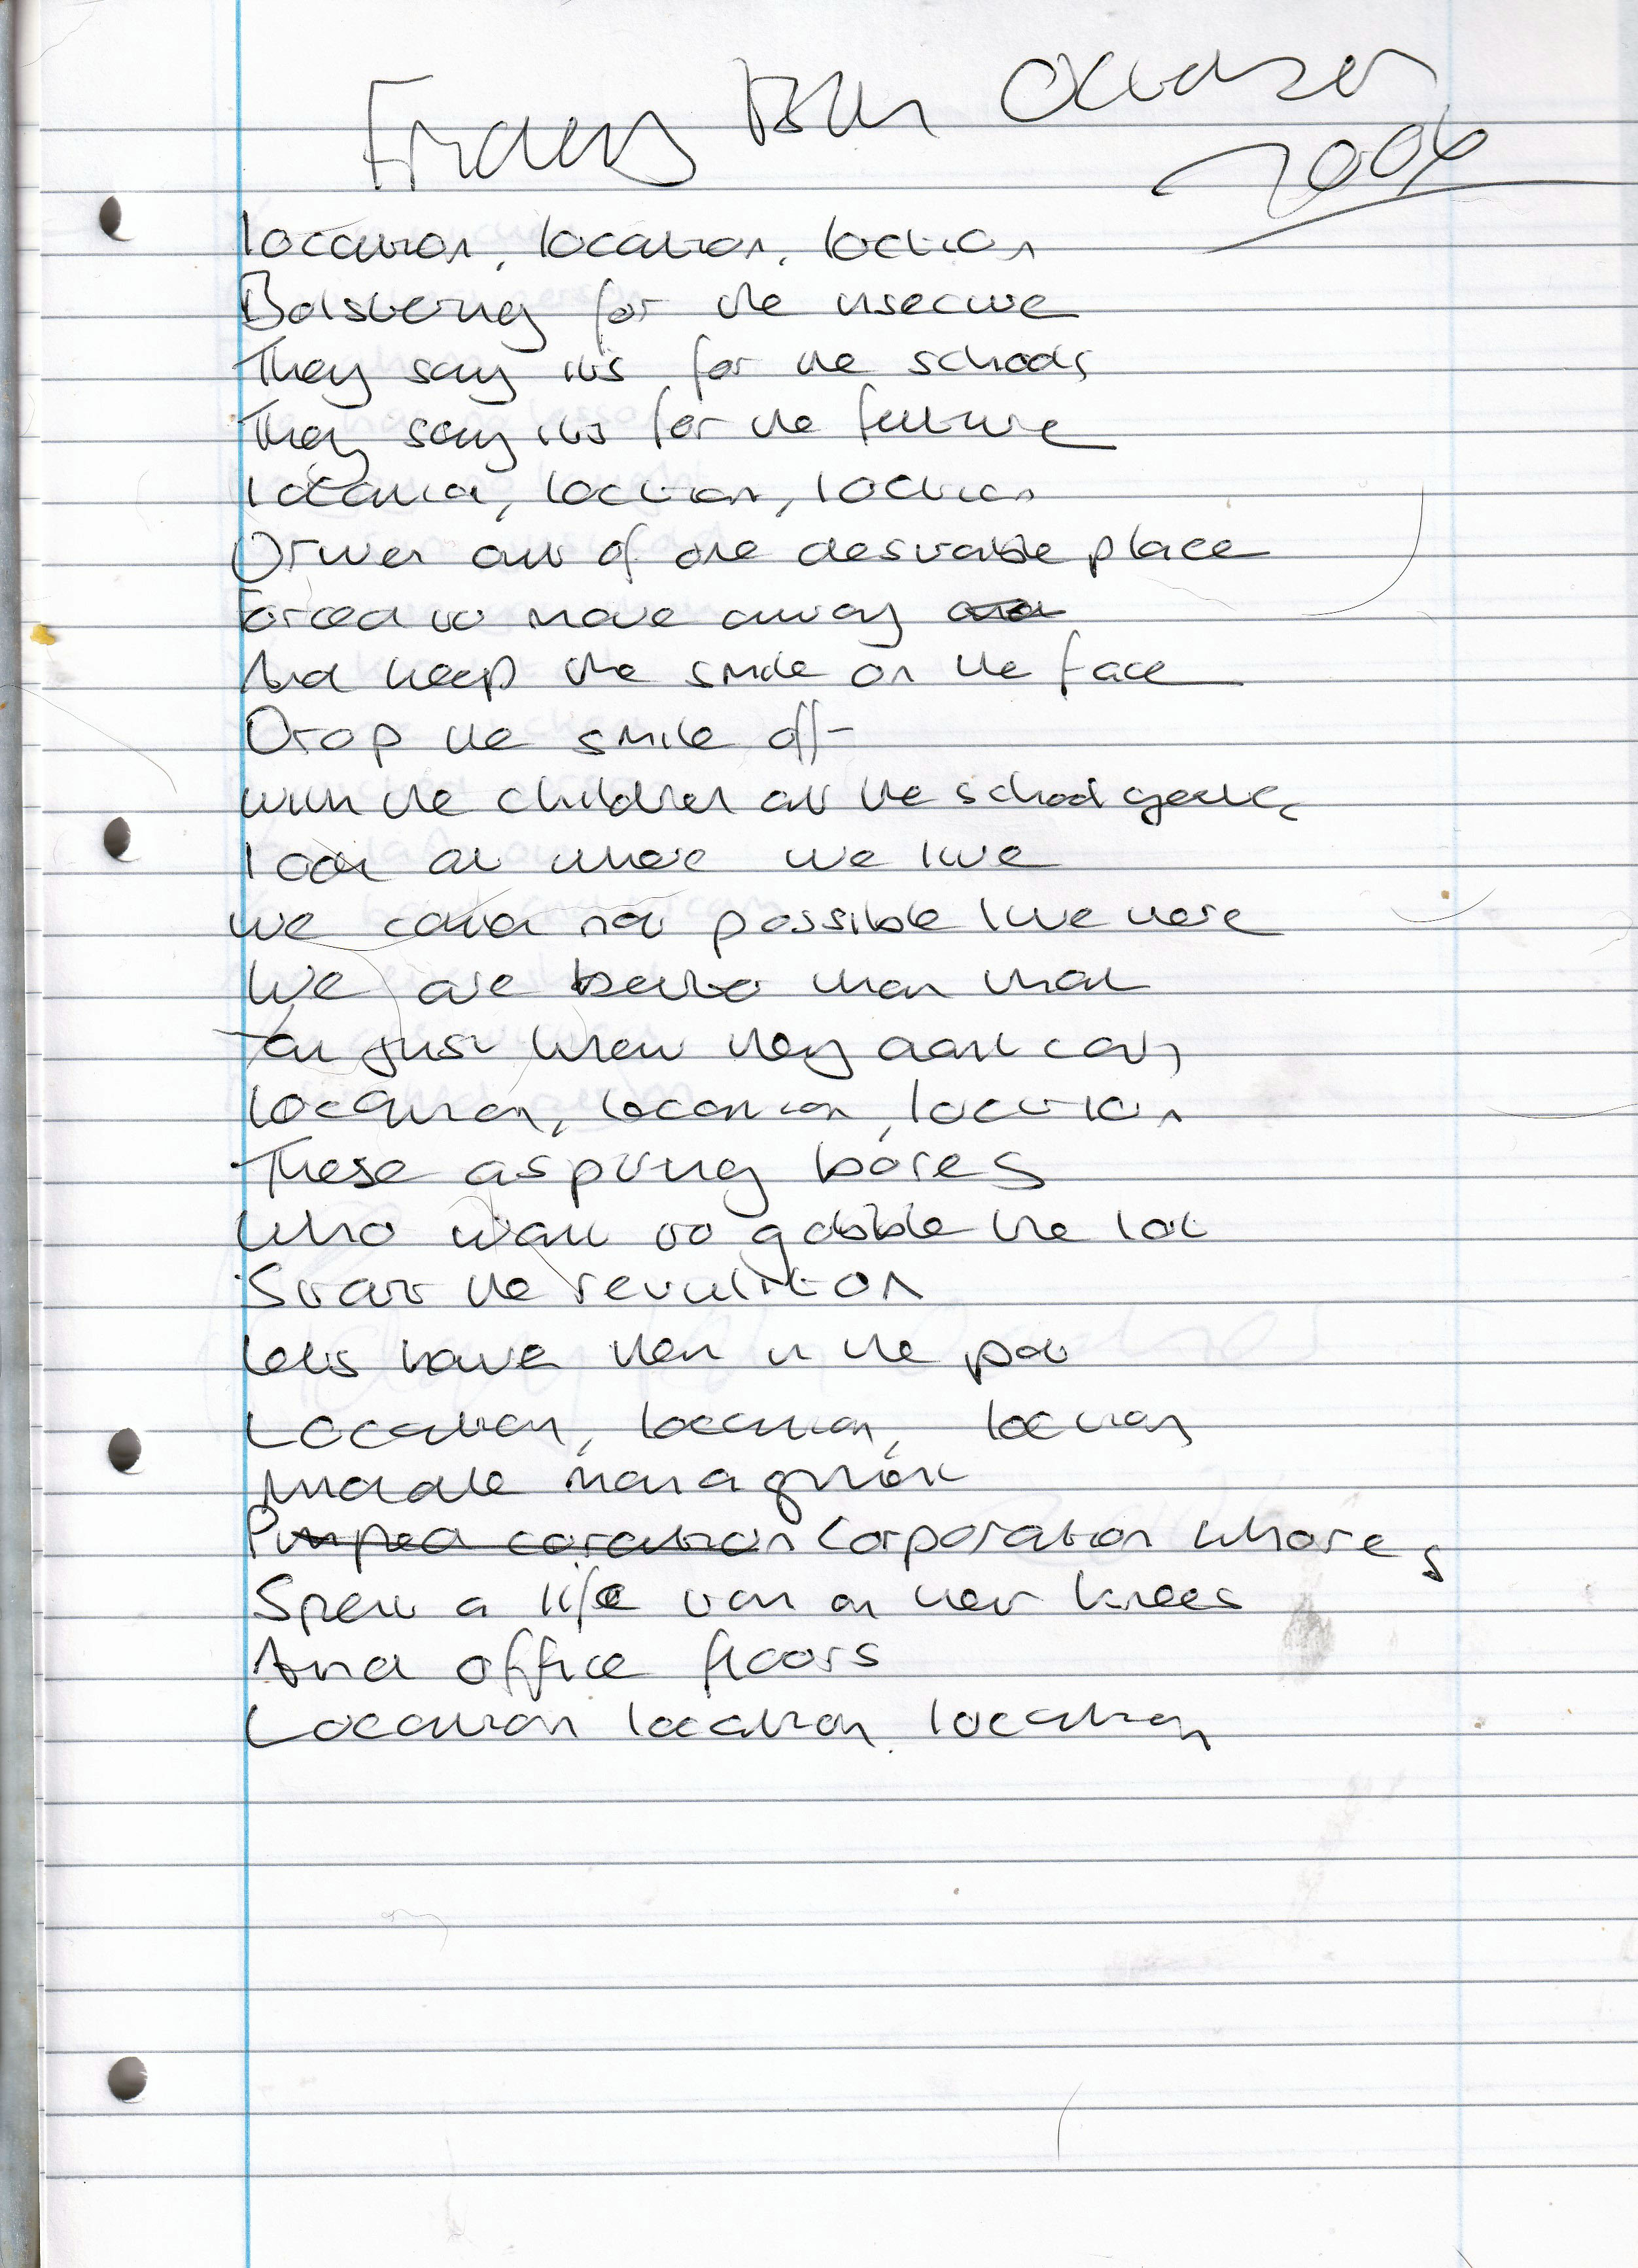 Friday 15th October 2004
Location, location, location
Bolstering for the insecure
They say its for the schools
They say its for the future
Location, location, location
Driven out of one desirable place
Forced to move away and
And keep the smile on the face
Drop the smile off
With the children at the school gates
Look at where we live
We could not possible live here
We are better than that
You just knew they dont care
Location, location, location
These aspiring bores
Who want to gobble the lot
Start the revolution
Lets have them in the pot
Location, location, location
Middle managment
Pimped coration Corporation whores
Spent a life time on her knees
And office floors
Location location location